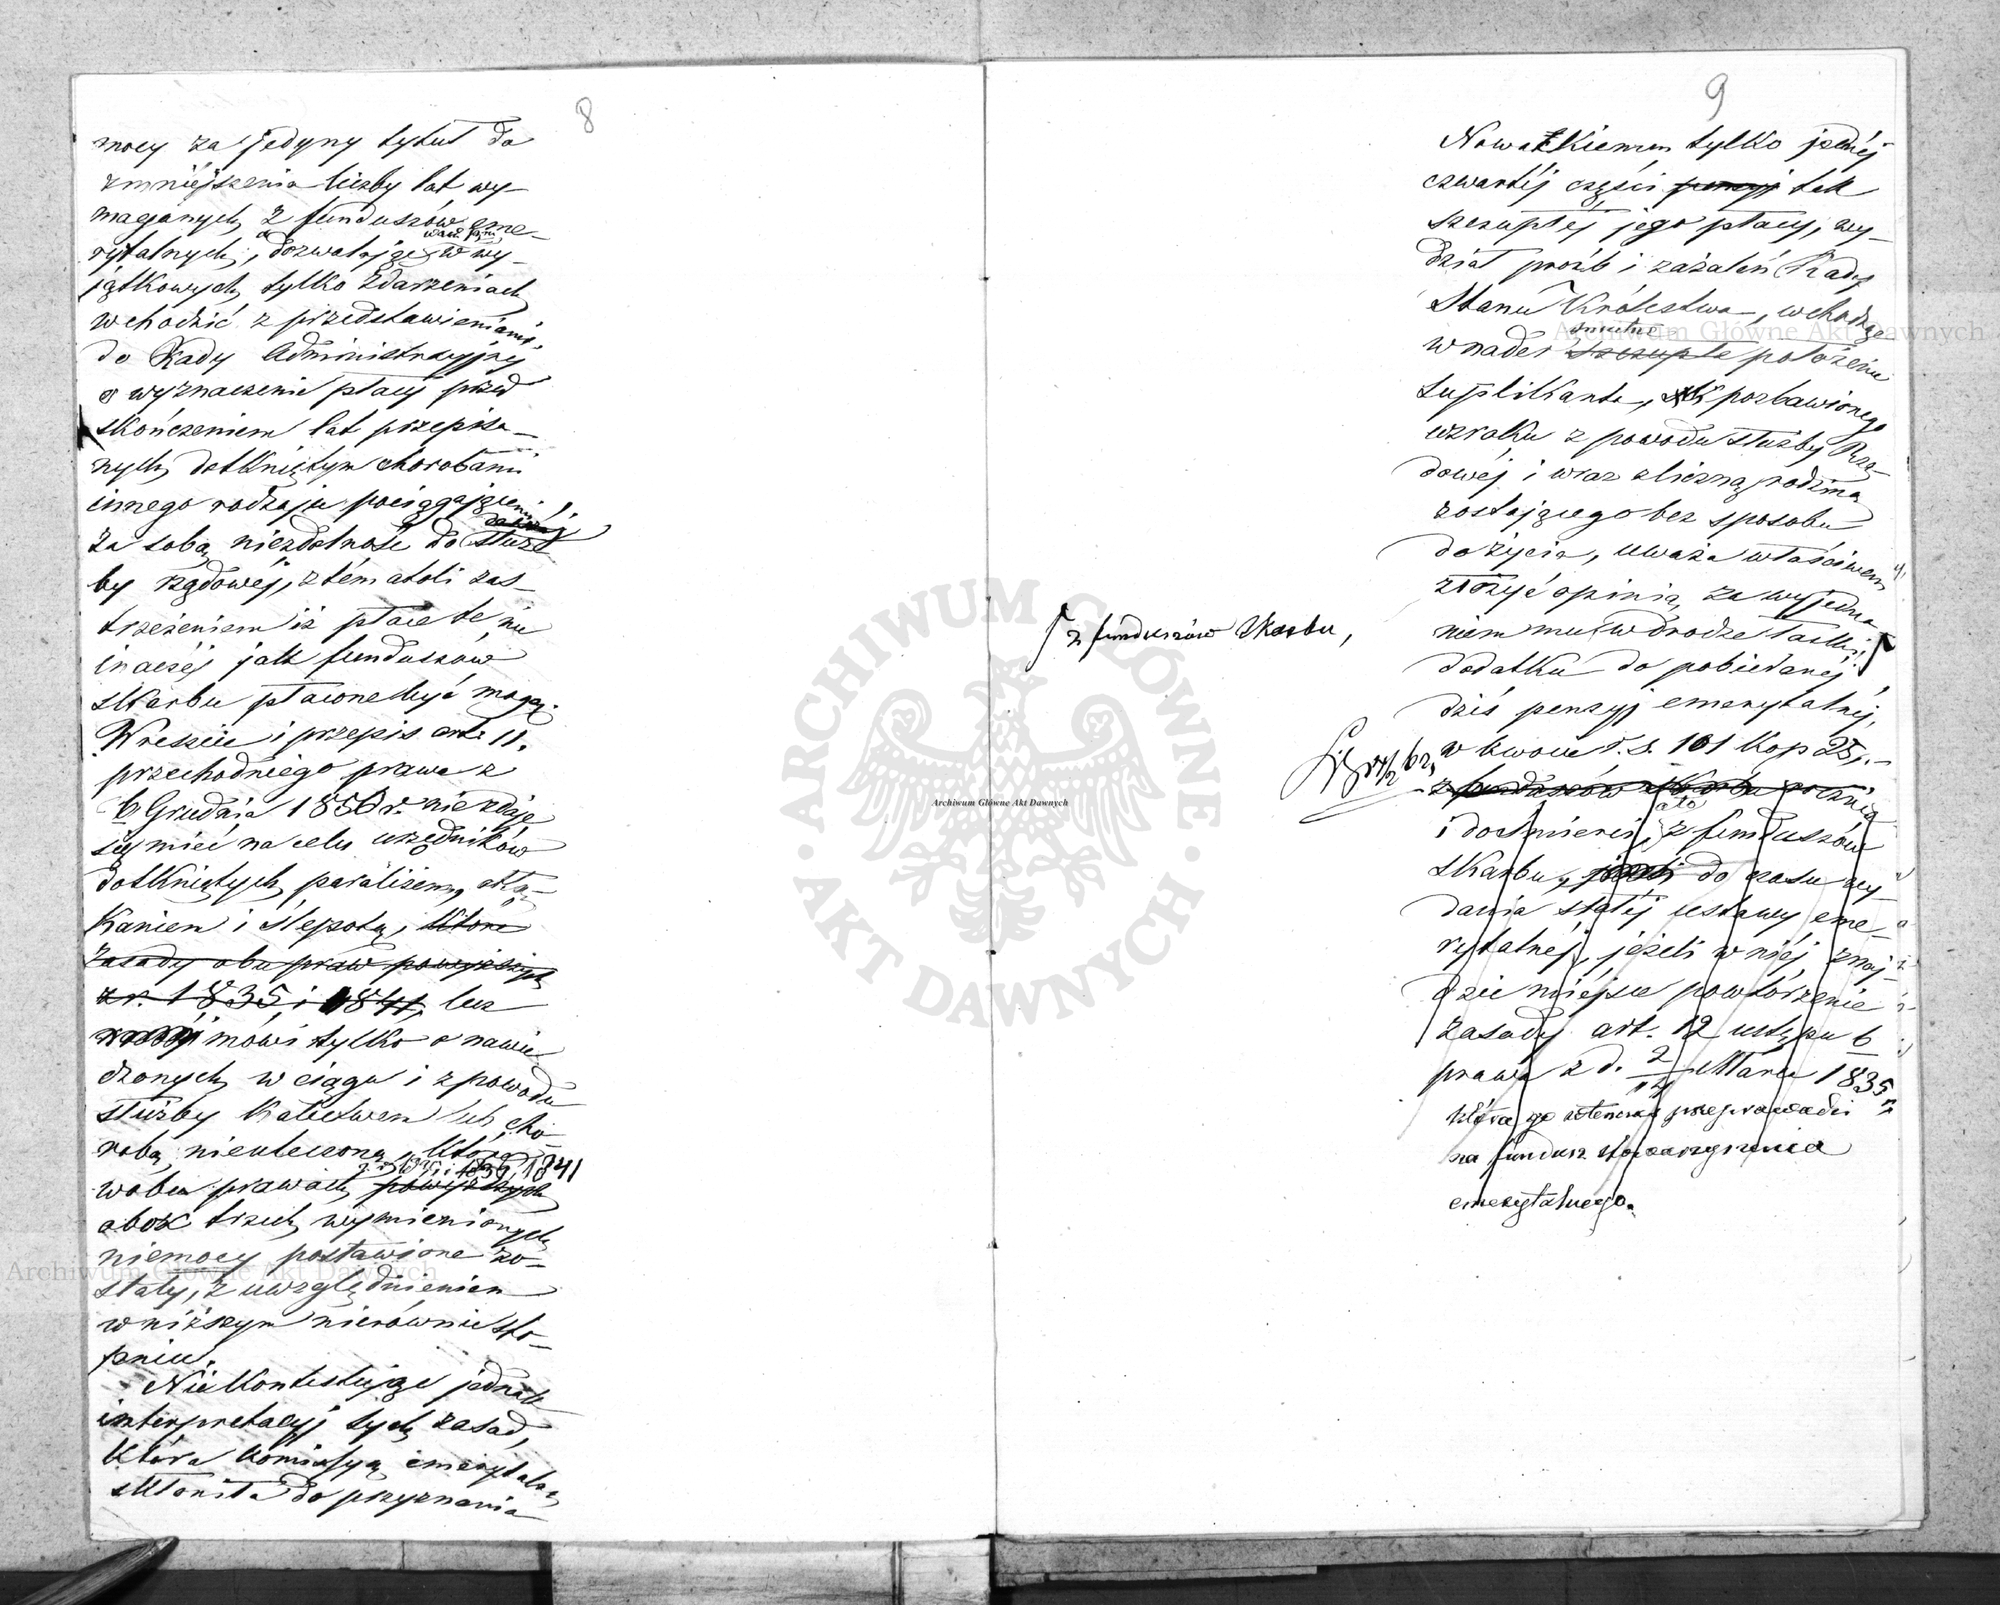 8
mocy za jedyny tytuł do
zmniejszenia liczby lat wy-
maganych z funduszów eme-
rytalnych, a dozwalając w wy-
jątkowych tylko zdarzeniach
wchodzić z przedstawieniami
do Rady Administracyjnej
o wyznaczenie płacy przed
skończeniem lat przepisa-
nych dotkniętym chorobami
innego rodzaju pociągającemi
za sobą niezdolność do służ-
by rządowéj, z tém atoli zas-
trzeżeniem iż płace te nie
inaczéj jak funduszów
skarbu płacone być mogą.
Wreszcie i przepis art. 11.
przechodniego prawa z
6 Grudnia 1856 r. nie zdaje
się mieć na celu urzędników
dotkniętych paraliżem, obłą-
kaniem i ślepotą, które
zasady obu praw powyższych
z r. 1835 i 1841, lecz
mówi tylko o nawie-
dzonych w ciągu i z powodu
służby kalectwem lub cho-
robą nieuleczoną, które
w obu prawach powyższych 1841
obok trzech wymienionych
niemocy postawione zo-
stały, z uwzględnieniem
w niższym nierównie sto-
pniu.
Nie kontestując jednak
interpretacyj tych zasad,
która komissyą emerytalną
skłoniła do przyznania
9
Nowakiemu tylko jednéj
czwartéj części pensyi tak
szczupłéj jego płacy, wy-
dział próśb i zażaleń Rady
Stanu Królestwa, wchodząc
smutne
w nader szczupłe położenie
suplikanta, pozbawionego
wzroku z powodu służby Rzą-
dowéj i wraz z liczną rodziną
zostającego bez sposobu
do życia, uważa właściwem
złożyć opinią, za wyjedna-
niem mu w drodze łaski
dodatku do pobieranéj
dziś pensyj emerytalnéj,
w kwocie r. s. 101 kop 25,
z funduszów skarbu,
z funduszów skarbu rocznie
i do śmierci, a to z funduszów
skarbu, do czasu wy-
dania stałéj ustawy eme-
rytalnéj, jeżeli w niéj znaj-
dzie miejsce powtórzenie
zasady art. 12 ustępu 6
prawa z d. 2/14 Marca 1835 r.
która go wtenczas przeprowadzi
na fundusz stowarzyszenia
emerytalnego.
Archiwum Główne Akt Dawnych
Archiwum Główne Akt Dawnych
Archiwum Główne Akt Dawnych
ARCHIWUM GŁÓWNE
AKT DAWNYCH